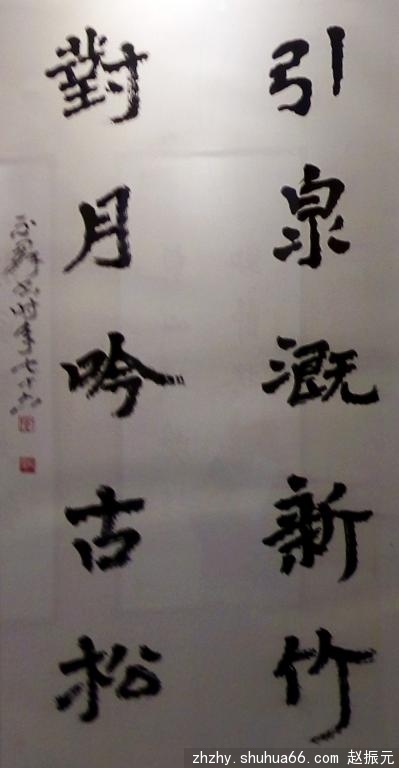 引泉溉新竹
對月吟古松
zhzhy.shuhua66.com 赵振元